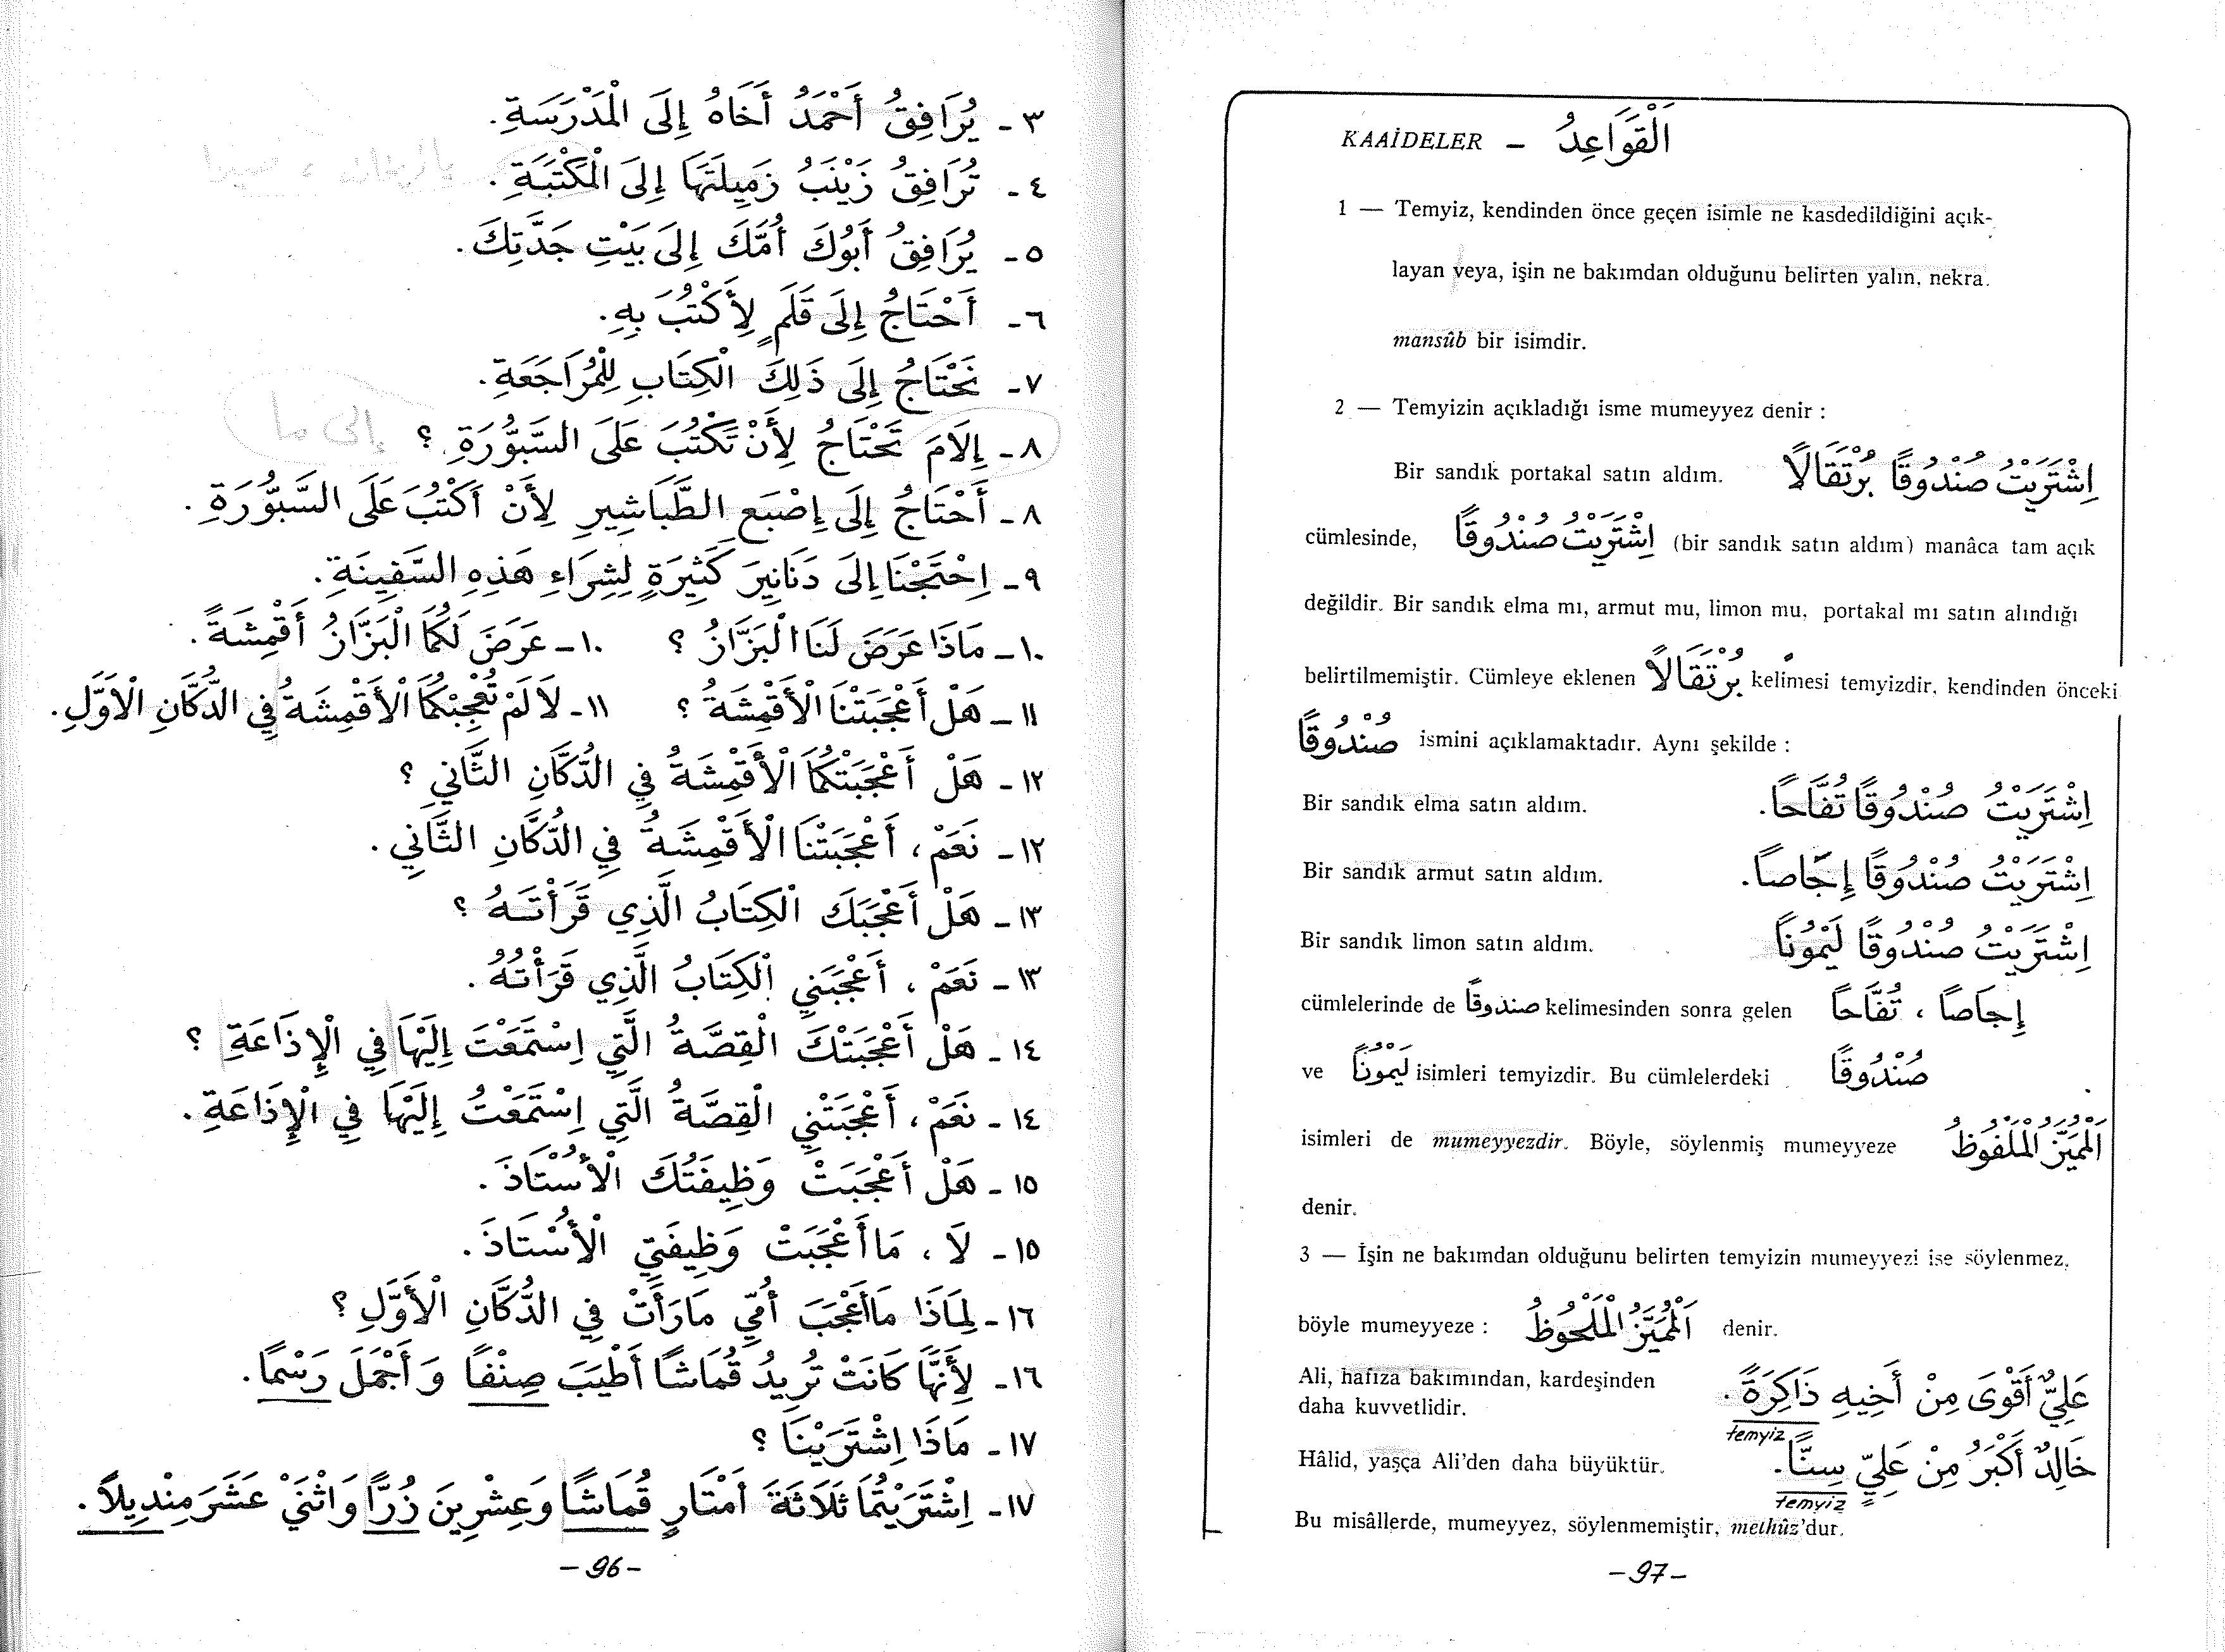 ٣ - يُرَافِقُ أَحْمَدُ أَخَاهُ إِلَى الْمَدْرَسَةِ.
٤ - تُرَافِقُ زَيْنَبُ زَمِيلَتَهَا إِلَى الْمَكْتَبَةِ.
٥ - يُرَافِقُ أَبُوكَ أُمَّكَ إِلَى بَيْتِ جَدَّتِكَ.
٦ - أَحْتَاجُ إِلَى قَلَمٍ لِأَكْتُبَ بِهِ.
٧ - نَحْتَاجُ إِلَى ذَلِكَ الْكِتَابِ لِلْمُرَاجَعَةِ.
٨ - إِلَامَ تَحْتَاجُ لِأَنْ تَكْتُبَ عَلَى السَّبُّورَةِ ؟
٨ - أَحْتَاجُ إِلَى إِصْبَعِ الطَّبَاشِيرِ لِأَنْ أَكْتُبَ عَلَى السَّبُّورَةِ.
٩ - اِحْتَجْنَا إِلَى دَنَانِيرَ كَثِيرَةٍ لِشِرَاءِ هَذِهِ السَّفِينَةِ.
١٠ - مَاذَا عَرَضَ لَنَا الْبَزَّازُ ؟ ١٠ - عَرَضَ لَكُمَا الْبَزَّازُ أَقْمِشَةً.
١١ - هَلْ أَعْجَبَتْنَا الْأَقْمِشَةُ ؟ ١١ - لَا لَمْ تُعْجِبْكُمَا الْأَقْمِشَةُ فِي الدُّكَّانِ الْأَوَّلِ.
١٢ - هَلْ أَعْجَبَتْكُمَا الْأَقْمِشَةُ فِي الدُّكَّانِ الثَّانِي ؟
١٢ - نَعَمْ، أَعْجَبَتْنَا الْأَقْمِشَةُ فِي الدُّكَّانِ الثَّانِي.
١٣ - هَلْ أَعْجَبَكَ الْكِتَابُ الَّذِي قَرَأْتَهُ ؟
١٣ - نَعَمْ، أَعْجَبَنِي الْكِتَابُ الَّذِي قَرَأْتُهُ.
١٤ - هَلْ أَعْجَبَتْكَ الْقِصَّةُ الَّتِي اِسْتَمَعْتَ إِلَيْهَا فِي الْإِذَاعَةِ ؟
١٤ - نَعَمْ، أَعْجَبَتْنِي الْقِصَّةُ الَّتِي اِسْتَمَعْتُ إِلَيْهَا فِي الْإِذَاعَةِ.
١٥ - هَلْ أَعْجَبَتْ وَظِيفَتُكَ الْأُسْتَاذَ.
١٥ - لَا، مَا أَعْجَبَتْ وَظِيفَتِي الْأُسْتَاذَ.
١٦ - لِمَاذَا مَا أَعْجَبَ أُمِّي مَا رَأَتْ فِي الدُّكَّانِ الْأَوَّلِ ؟
١٦ - لِأَنَّهَا كَانَتْ تُرِيدُ قُمَاشًا أَطْيَبَ صِنْفًا وَ أَجْمَلَ رَسْمًا.
١٧ - مَاذَا اِشْتَرَيْنَا ؟
١٧ - اِشْتَرَيْتُمَا ثَلَاثَةَ أَمْتَارٍ قُمَاشًا وَعِشْرِينَ زُرًّا وَاثْنَيْ عَشَرَ مِنْدِيلًا.
- 96 -
KAAİDELER - اَلْقَوَاعِدُ
1 — Temyiz, kendinden önce geçen isimle ne kasdedildiğini açık-
layan veya, işin ne bakımdan olduğunu belirten yalın, nekra.
mansûb bir isimdir.
2 — Temyizin açıkladığı isme mumeyyez denir :
Bir sandık portakal satın aldım. اِشْتَرَيْتُ صُنْدُوقًا بُرْتُقَالًا
cümlesinde, اِشْتَرَيْتُ صُنْدُوقًا (bir sandık satın aldım) manâca tam açık
değildir. Bir sandık elma mı, armut mu, limon mu, portakal mı satın alındığı
belirtilmemiştir. Cümleye eklenen بُرْتُقَالًا kelimesi temyizdir. kendinden önceki
صُنْدُوقًا ismini açıklamaktadır. Aynı şekilde :
Bir sandık elma satın aldım. اِشْتَرَيْتُ صُنْدُوقًا تُفَّاحًا.
Bir sandık armut satın aldım. اِشْتَرَيْتُ صُنْدُوقًا إِجَّاصًا.
Bir sandık limon satın aldım. اِشْتَرَيْتُ صُنْدُوقًا لَيْمُونًا
cümlelerinde de صندوقًا kelimesinden sonra gelen إِجَاصًا ، تُفَّاحًا
ve لَيْمُونًا isimleri temyizdir. Bu cümlelerdeki صُنْدُوقًا
isimleri de mumeyyezdir. Böyle, söylenmiş mumeyyeze اَلْمُمَيَّزُ الْمَلْفُوظُ
denir.
3 — İşin ne bakımdan olduğunu belirten temyizin mumeyyezi ise söylenmez,
böyle mumeyyeze : اَلْمُمَيَّزُ الْمَلْحُوظُ denir.
Ali, hafıza bakımından, kardeşinden عَلِيٌّ أَقْوَى مِنْ أَخِيهِ ذَاكِرَةً.
daha kuvvetlidir.
temyiz
Hâlid, yaşça Ali'den daha büyüktür. خَالِدٌ أَكْبَرُ مِنْ عَلِيٍّ سِنًّا.
temyiz
Bu misâllerde, mumeyyez, söylenmemiştir, melhûz'dur.
- 97 -